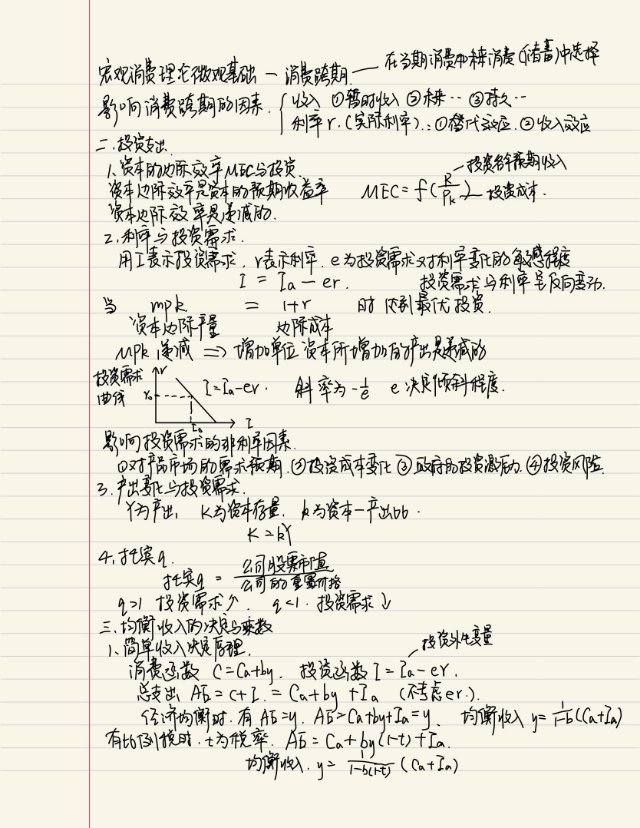 宏观消费理论微观基础 — 消费跨期 — 在当期消费和未来消费(储蓄)中选择
影响消费跨期的因素 { 收入 ①暂时收入 ②未来… ③持久…
利率r.(实际利率):①替代效应.②收入效应
二.投资支出
1.资本的边际效率MEC与投资
资本边际效率是资本的预期收益率 MEC=f(R/Pk) 投资各年预期收入 投资成本.
资本边际效率是递减的.
2.利率与投资需求.
用I表示投资需求,r表示利率,e为投资需求对利率变化的敏感程度
I = Ia - er. 投资需求与利率呈反向变动.
当 mpk = 1+r 时 达到最优投资.
资本边际产量 边际成本
MPk递减 => 增加单位资本所增加的产出是递减的
投资需求曲线 r r0 I0 I I=Ia-er. 斜率为-1/e e决定倾斜程度.
影响投资需求的非利率因素.
①对产品市场的需求预期.②投资成本变化③政府的投资激励.④投资风险
3.产出变化与投资需求.
Y为产出, K为资本存量, k为资本—产出比.
K=kY
4.托宾q.
托宾q = 公司股票市值/公司的重置价格
q>1 投资需求↑. q<1.投资需求↓
三.均衡收入的决定与乘数
1.简单收入决定原理. 投资外生变量
消费函数 C=Ca+by. 投资函数I=Ia-er.
总支出 AE=C+I = Ca+by+Ia (不考虑er.)
经济均衡时.有AE=y. AE=Ca+by+Ia=y. 均衡收入 y=1/1-b(Ca+Ia)
有比例税时.t为税率. AE=Ca+by(1-t)+Ia.
均衡收入.y= 1/1-b(1-t) (Ca+Ia)